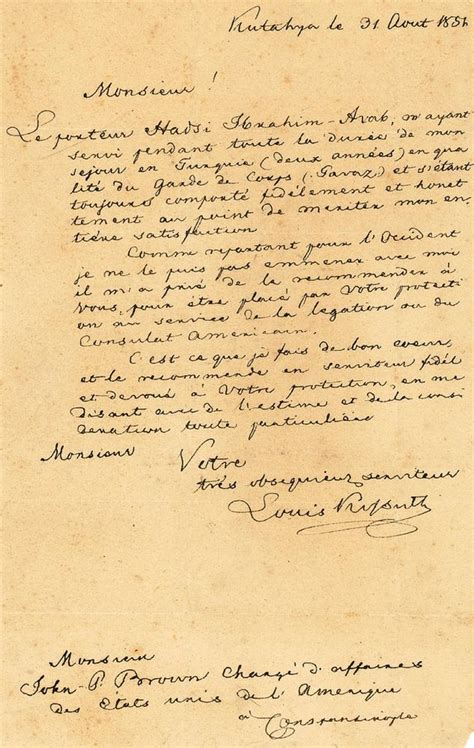 Kutahya le 31 Aout 1851
Monsieur!
Le porteur Hadsi Ibrahim-Arab, m'ayant
servi pendant toute la durée de mon
sejour en Turquie (deux années) en qua
lité du Garde de Corps (Savaz) et s'étant
toujours comporté fidélement et honet
tement au point de meriter mon en
tiére satisfaction
Comme repartant pour l'Occident
je ne le puis pas emmener avec moi
il m'a prié de la recommender à
Vous, pour étre placé par Votre protecti
on au service de la legation ou du
Consulat Americain.
C'est ce que je fais de bon coeur,
et le recommende en serviteur fidél
et devoué à Votre protection, en me
disant avec de l'estime et de la consi
deration toute particuliére
Monsieur
Votre
trés obsequieux serviteur
Louis Kossuth
Monsieur
John P. Brown Chargé d'affaires
des États unis de l'Amérique
à Constantinople